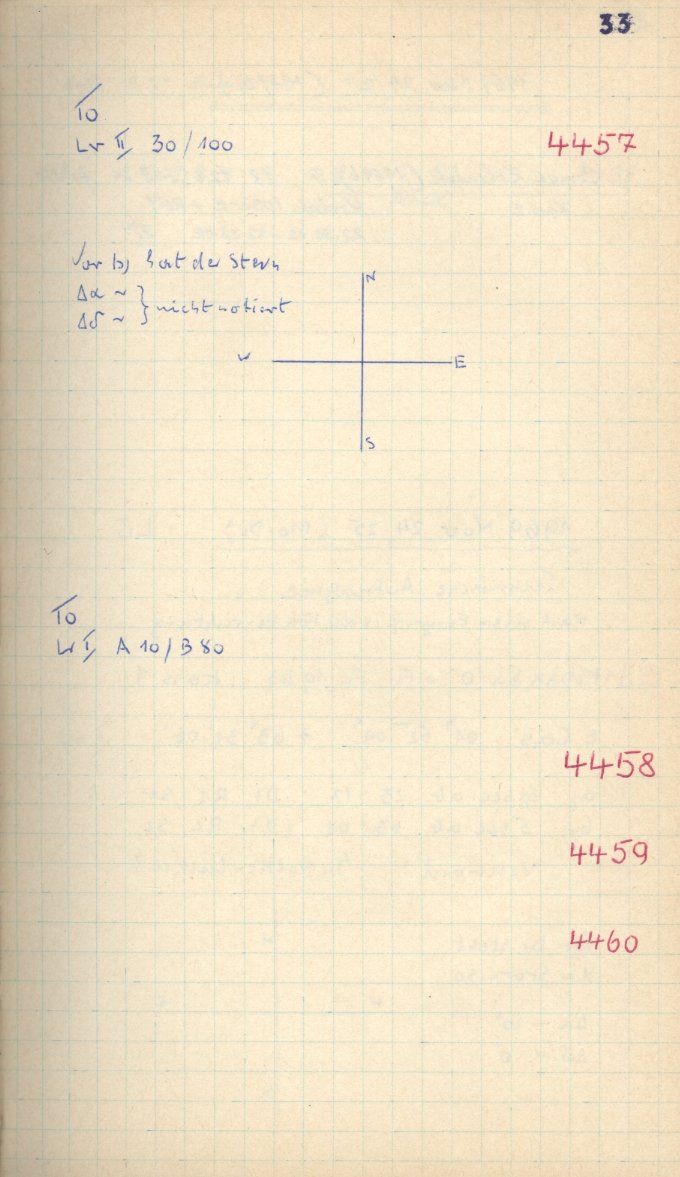 33
To
Lr II, 30/100
4457
Vor b) hat der Stern
Δα ~
Δδ ~
} nicht notiert
N
W
E
S
To
Lr I, A 10/B 80
4458
4459
4460